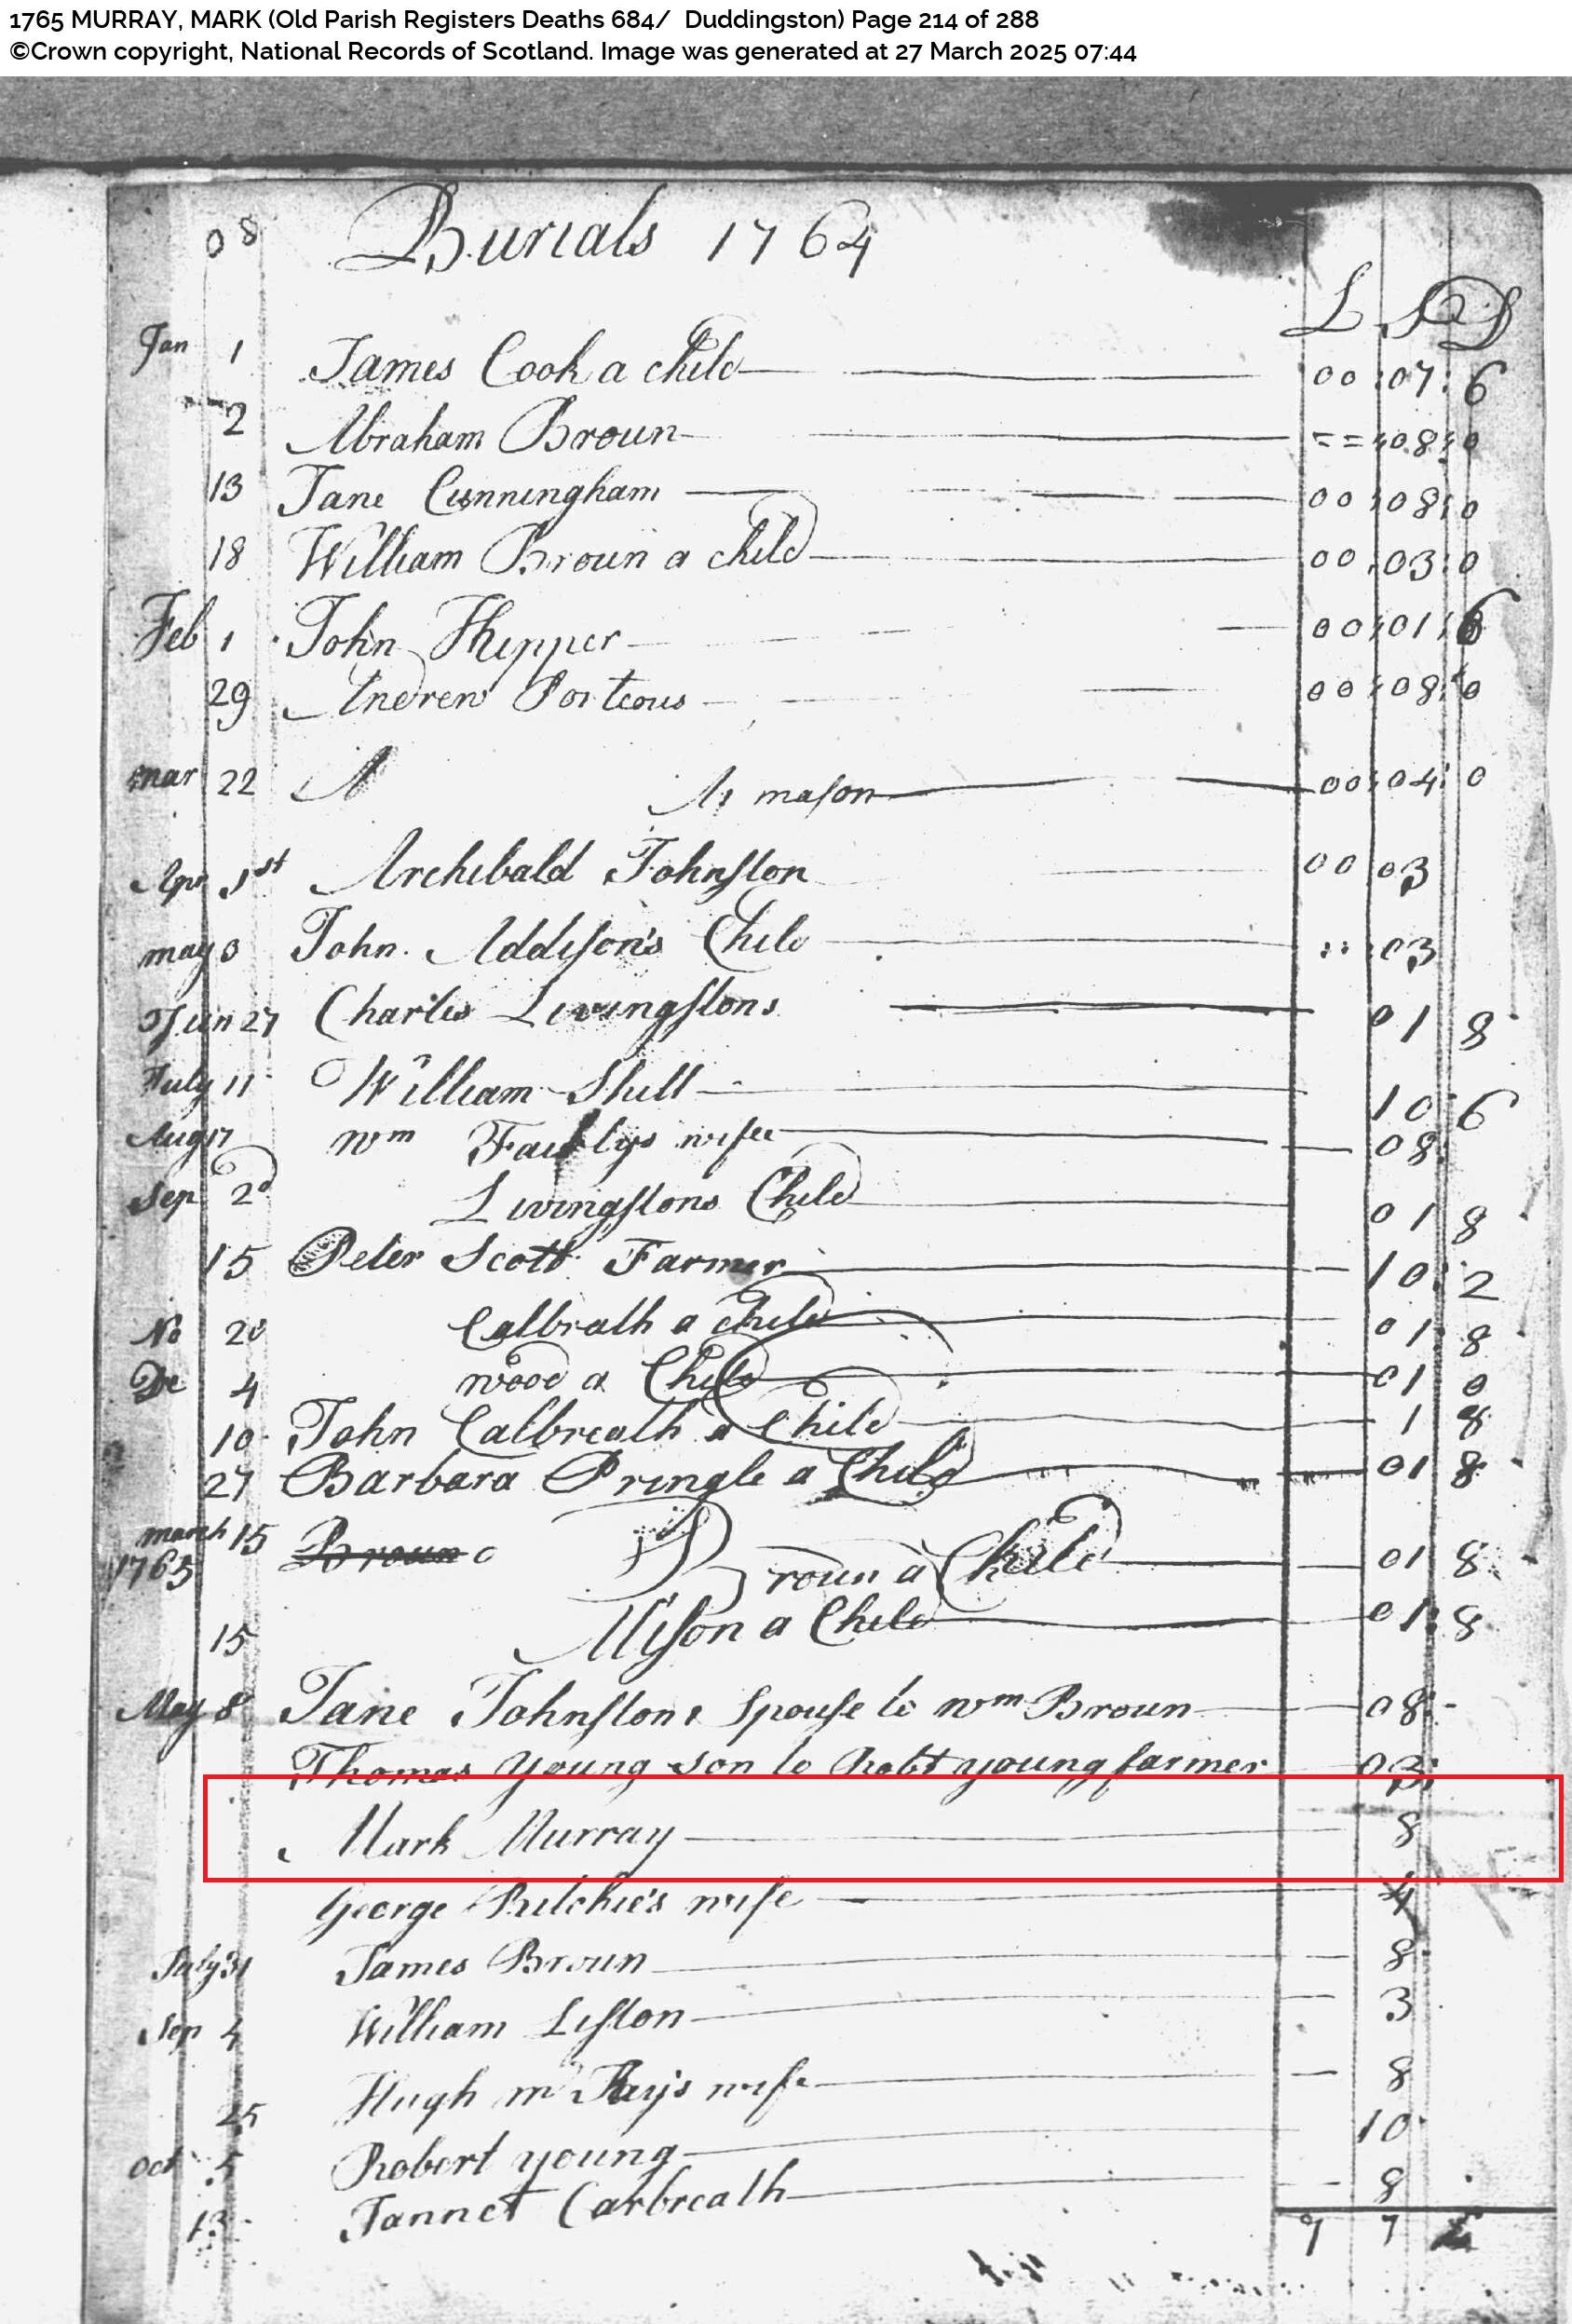 1765 MURRAY, MARK (Old Parish Registers Deaths 684/ Duddingston) Page 214 of 288
©Crown copyright, National Records of Scotland. Image was generated at 27 March 2025 07:44
08 Burials 1764
L S D
Jan 1 James Cook a child 00 : 07 : 6
2 Abraham Broun == : 08 : 0
13 Jane Cunningham 00 : 08 : 0
18 William Broun a child 00 : 03 : 0
Feb 1 John 00 : 01 : 6
29 Andrew Porteous 00 : 08 : 0
mar 22 mason 00 : 04 : 0
Apr 1st Archibald Johnston 00 03
may 3 John Addison's Child 03
Jun 27 Charles Livingstons 01 8
July 11 William 10 6
Aug 17 Wm wife 08
Sep 2d Livingstons Child 01 8
15 Peter Scott Farmer 10 : 2
No 20 Calbrath a child 01 8
De 4 wood a Child 01 0
10 John Calbreath a Child 1 8
27 Barbara Pringle a Child 01 8
march 15 Broun Broun a Child 01 8
1765
15 Alison a Child 01 : 8
May 8 Jane Johnston Spouse to Wm Broun 08 : -
Thomas Young son to Robt young farmer 03 :
Mark Murray 8
George Ritchie's wife 4
July 31 James Broun 8
Sep 4 William Liston 3
25 Hugh mc Kay's wife 8
Oct 5 Robert young 10
13 Jannet Carbreath 8
9 7